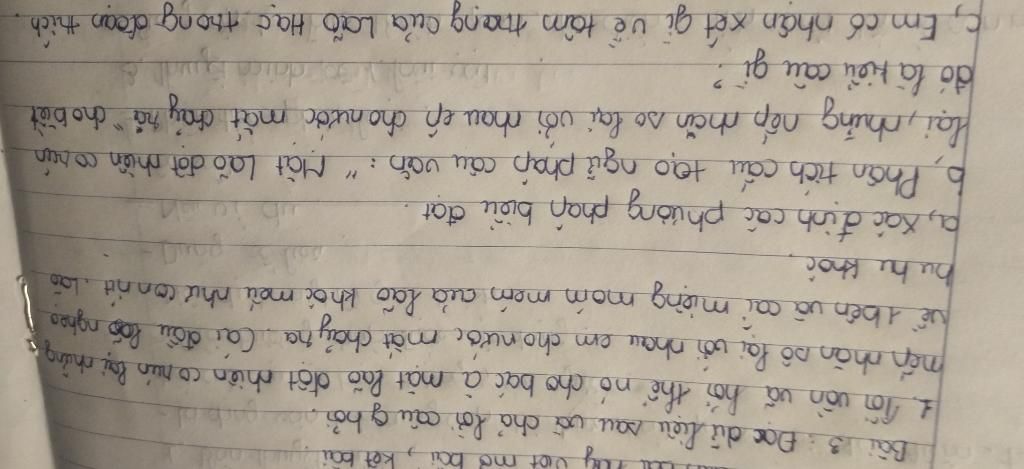 hãy viết mở bài, kết bài
Bài 3: Đọc dữ liệu sau và chả lời câu g hỏi.
1. Tôi vẫn vã hỏi thế nó cho bắc à, mặt lão đột nhiên co rúm lại những
nếp nhăn sô lại với nhau em cho nước mắt chảy ra. Cái đầu lão ngẹo
về 1 bên và cái miệng móm mém của lão khóc mếu như con nít. Lão
hu hu khóc.
a, xác định các phương phạp biểu đạt.
b, Phân tích cấu tạo ngữ pháp câu văn: "Mặt Lão đột nhiên co rún
lại, những nếp nhăn so lại với nhau ép cho nước mắt chảy ra" cho biết
đó là kiểu câu gì?
c, Em có nhận xét gì về tâm trạng của Lão Hạc trong đoạn trích.